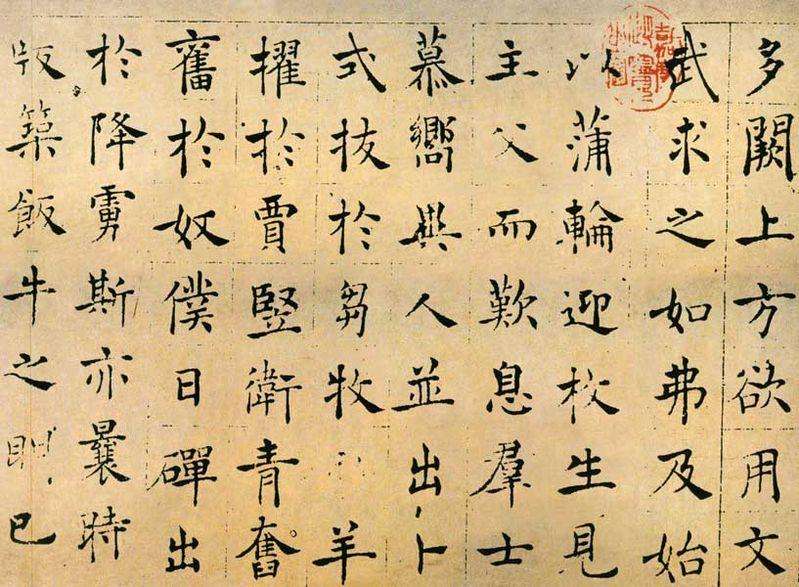 多闕上方欲用文
武求之如弗及始
以蒲輪迎枚生見
主父而歎息羣士
慕嚮異人並出卜
式拔於芻牧羊
擢於賈豎衛青奮
奮於奴僕日磾出
於降虜斯亦曩時
版築飯牛之已